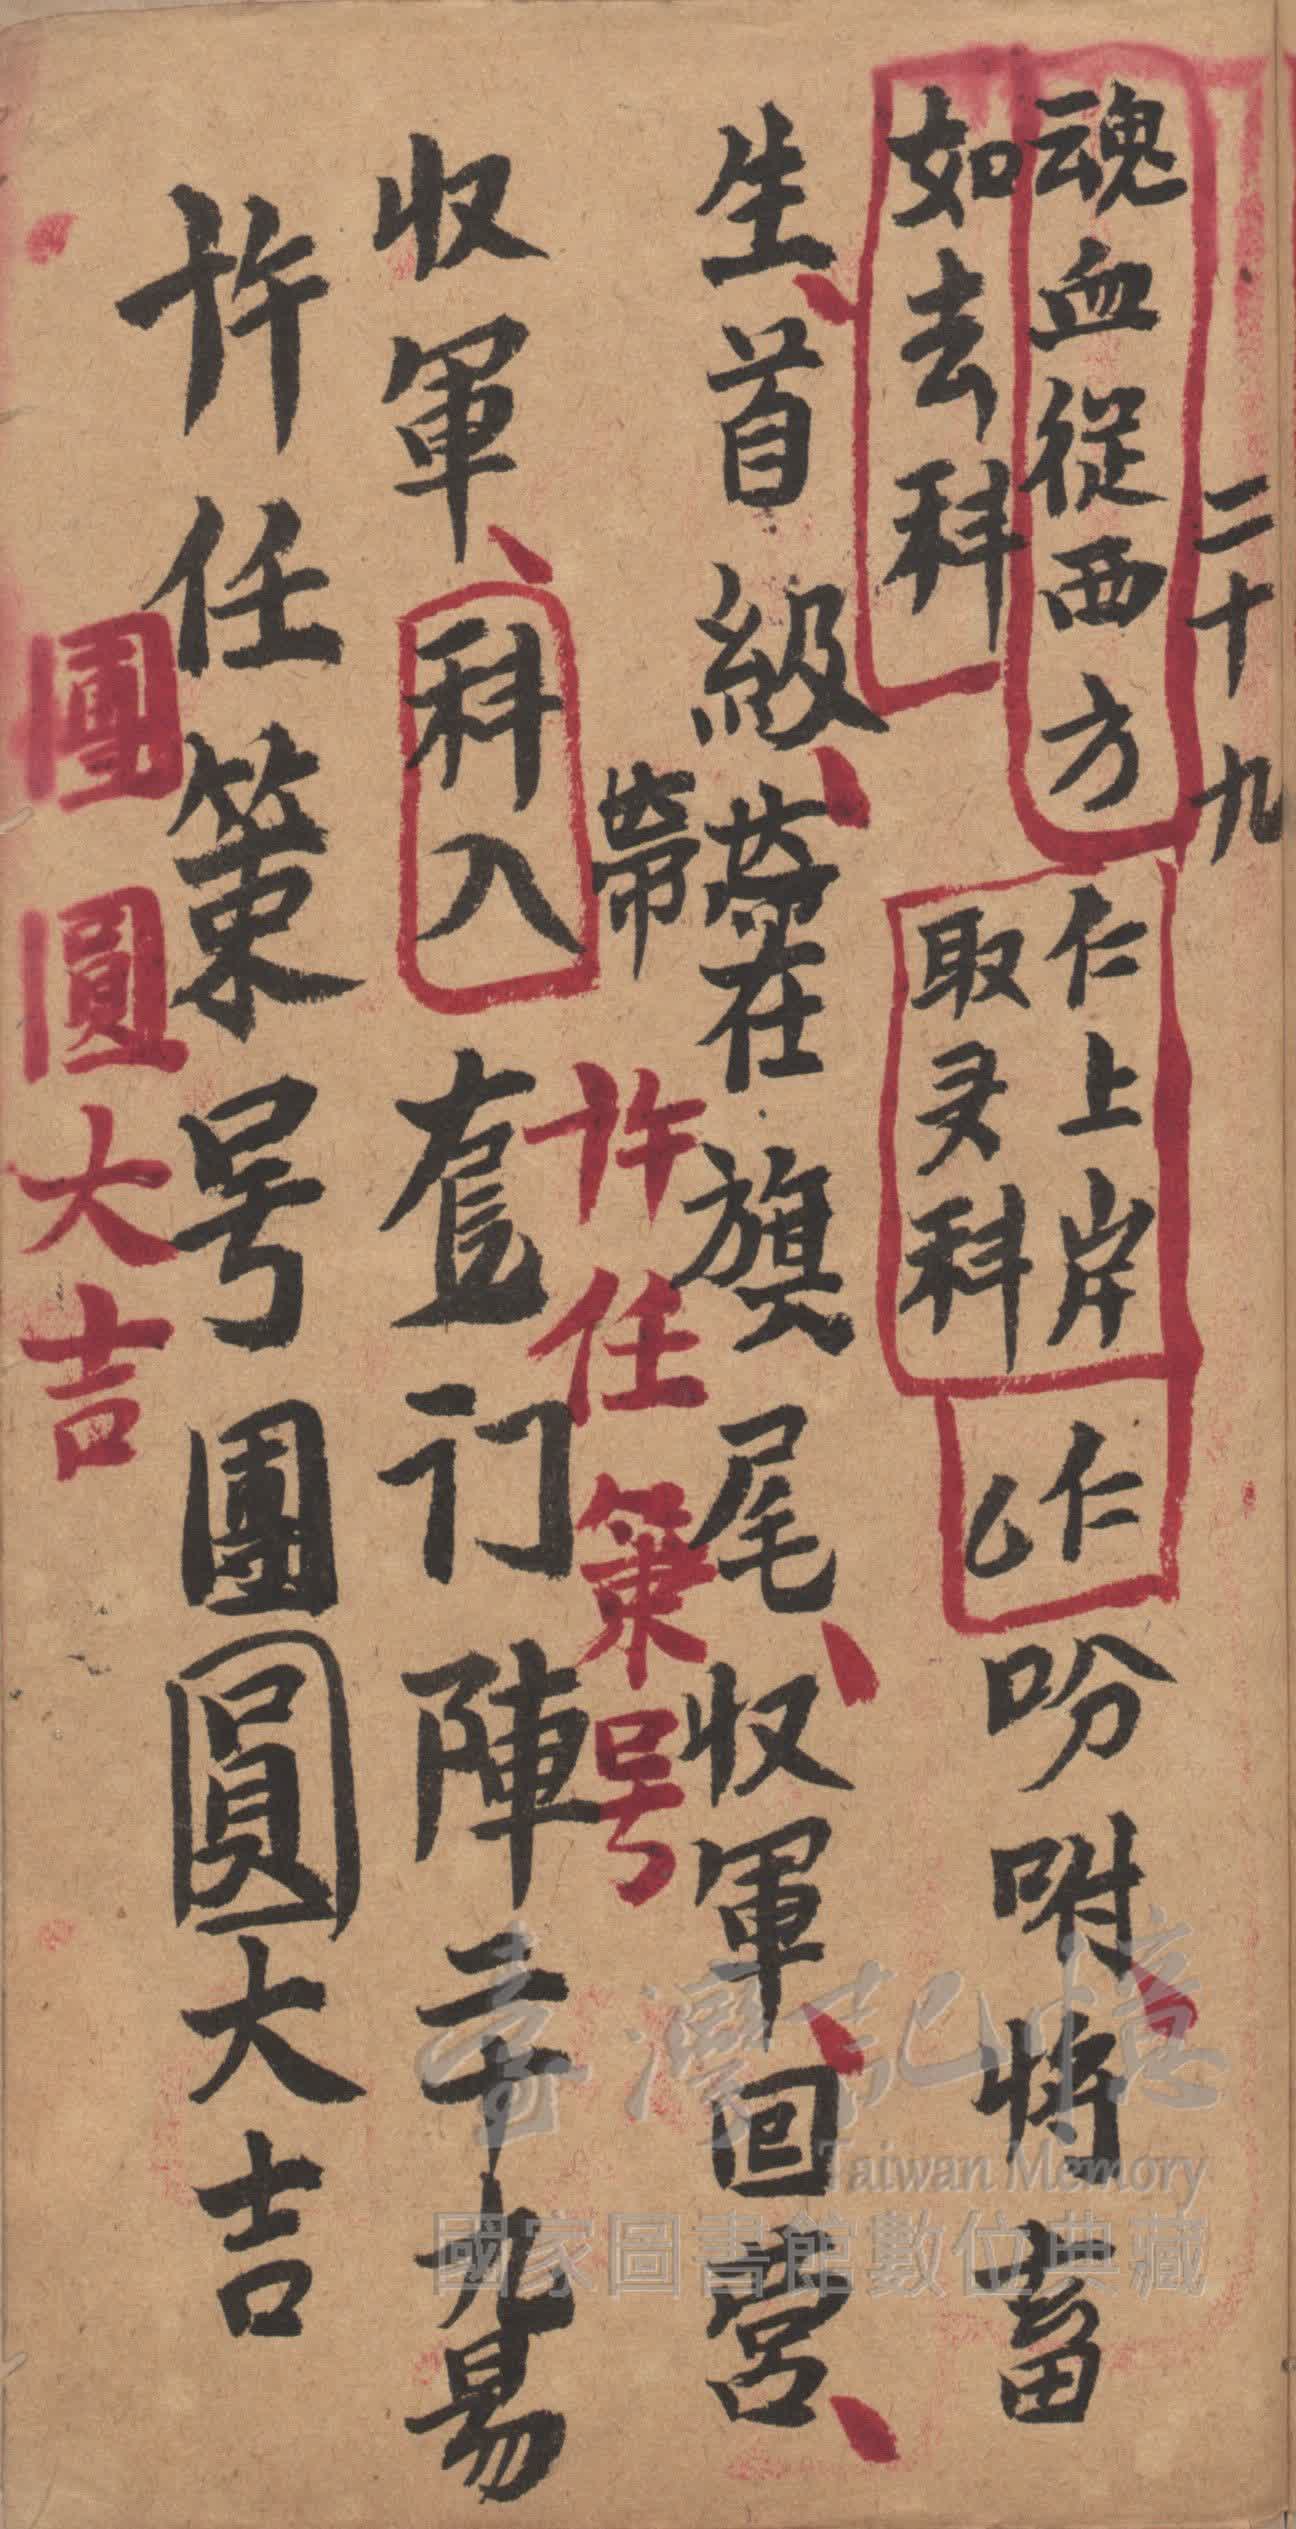 二十九
魂血從西方
如去科
仁上岸
取
科
仁
吩咐將畜
生首級帶在旗尾收軍回营
帶
許任策号
收軍科入
订陣二十九易
許任策号團圓大吉
團圓大吉
臺灣記憶
Taiwan Memory
國家圖書館數位典藏